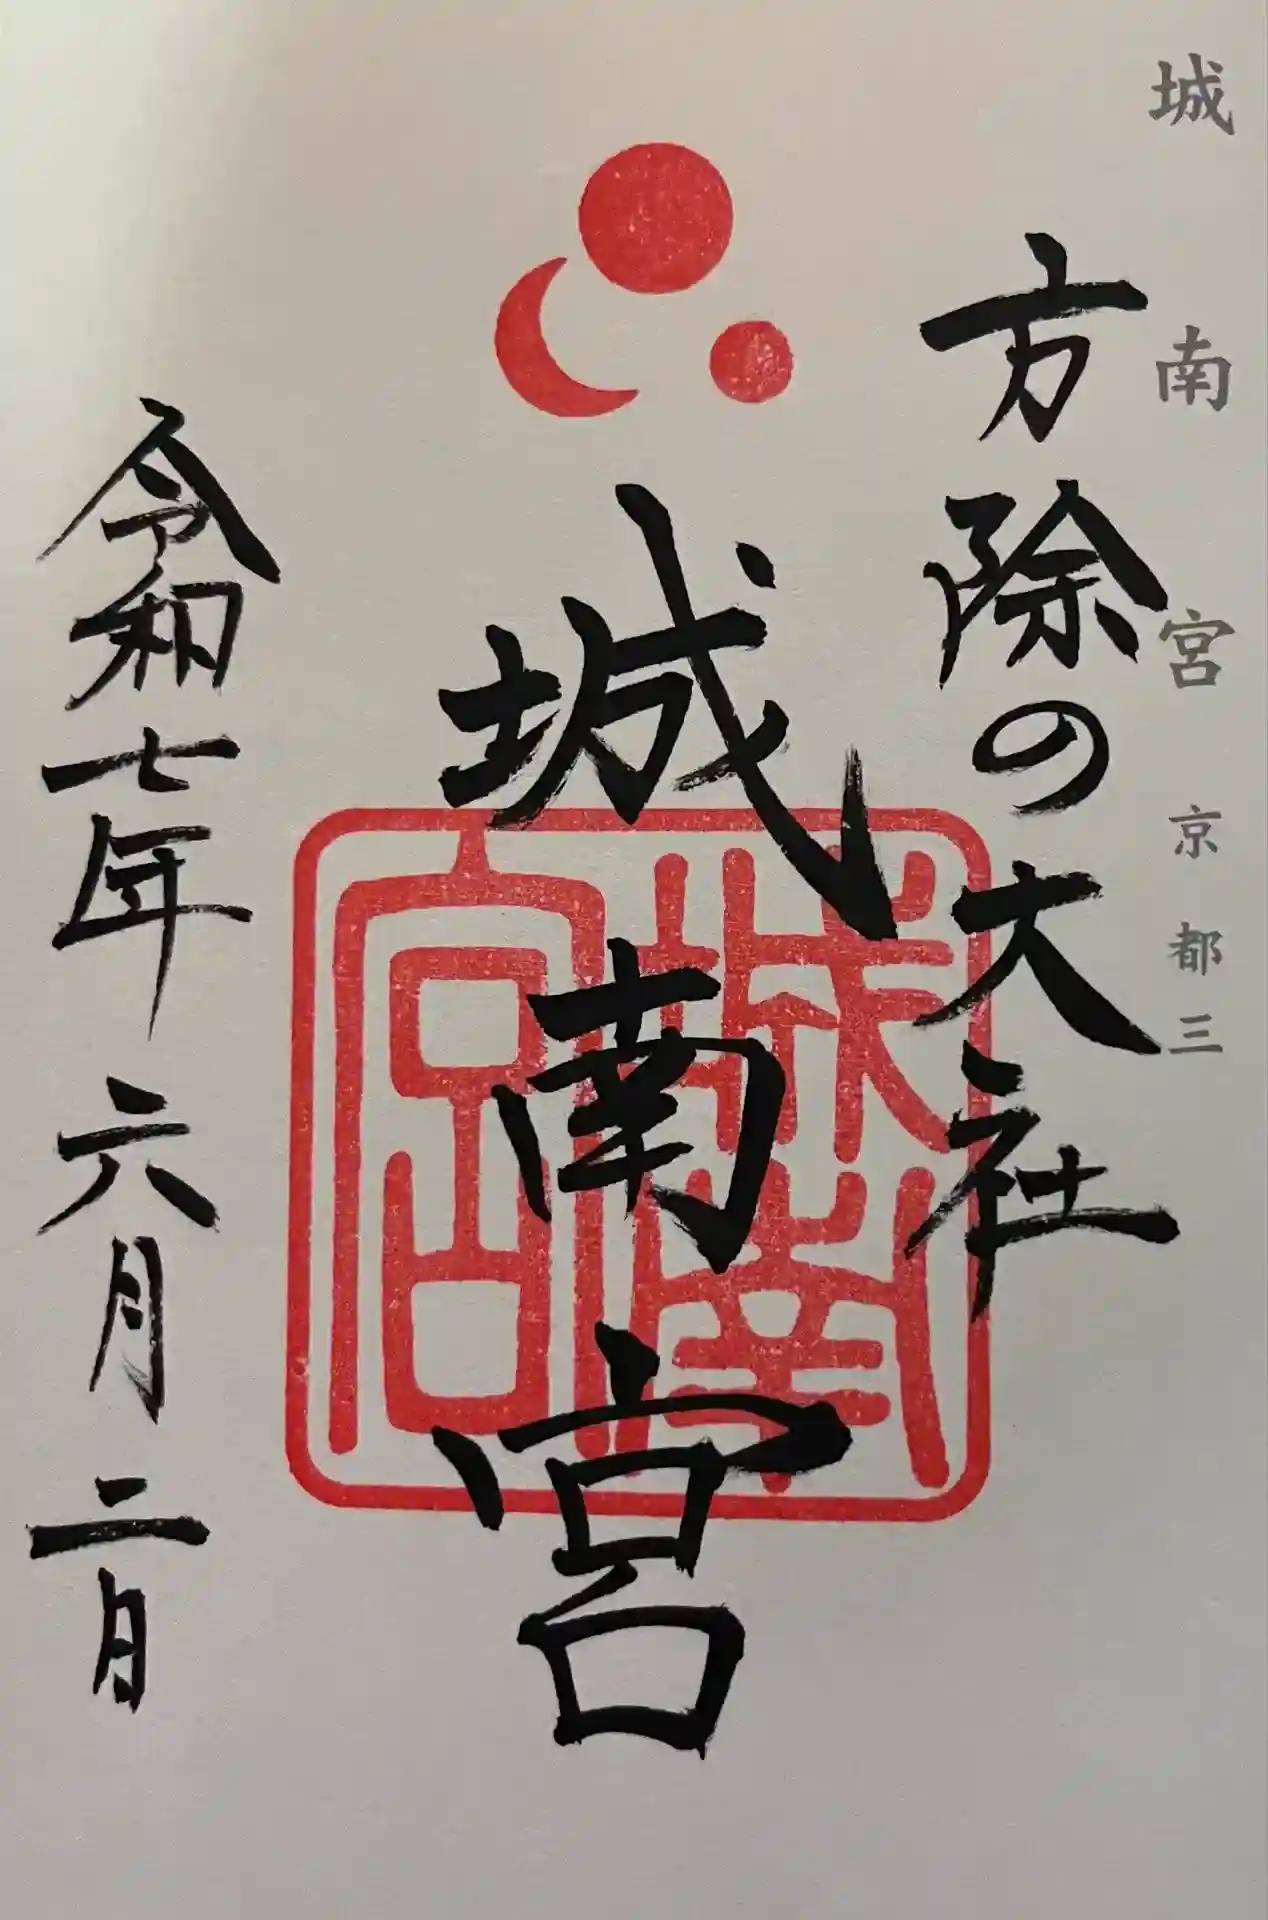 城南宮 京都三
方除の大社
城南宮
城南宮
令和七年 六月 二日